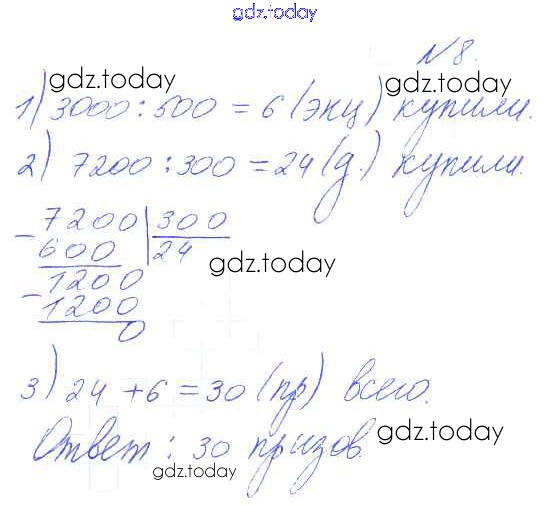 gdz.today
№8.
gdz.today gdz.today
1) 3000:500 = 6 (экц) купили.
2) 7200:300 = 24 (д.) купили.
- 7200 | 300
600 24
gdz.today
- 1200
1200
0
3) 24 + 6 = 30 (пр) всего.
Ответ: 30 призов.
gdz.today
gdz.today